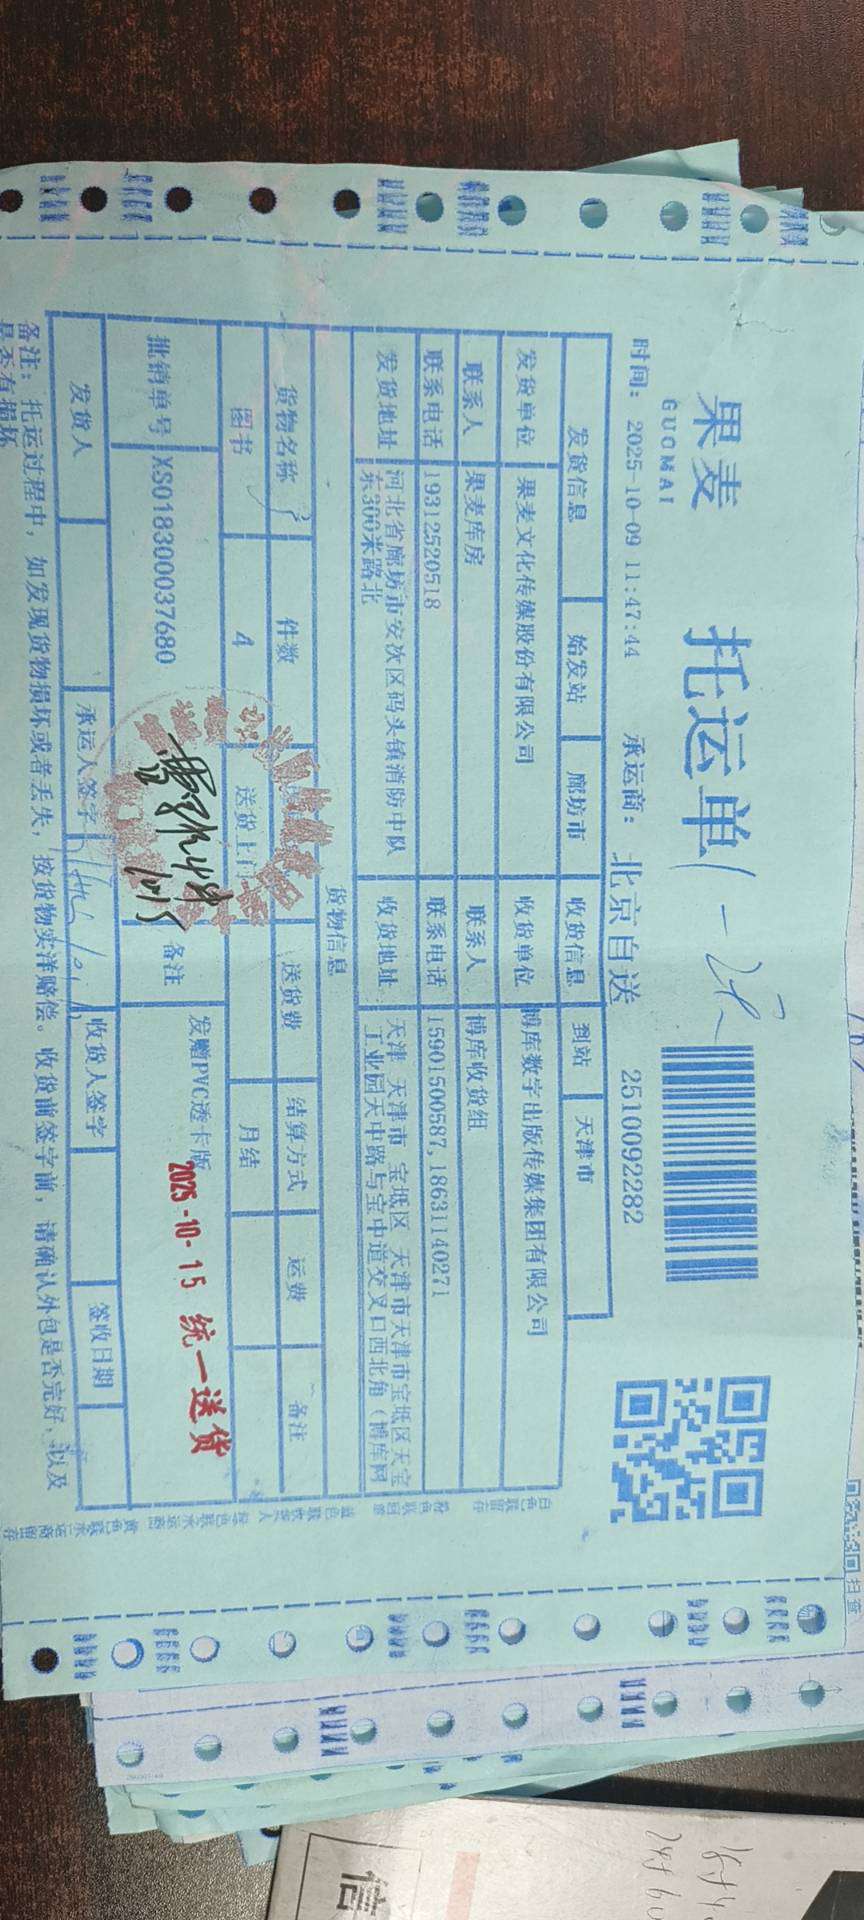 果麦
GUOMAI
托运单
时间：2025-10-09 11:47:44 承运商：北京自送 2510092282
发货信息 始发站 廊坊市 收货信息 到站 天津市
发货单位 果麦文化传媒股份有限公司 收货单位 博库数字出版传媒集团有限公司
联系人 果麦库房 联系人 博库收货组
联系电话 19312520518 联系电话 15901500587,18631140271
发货地址 河北省廊坊市安次区码头镇消防中队东300米路北 收货地址 天津 天津市 宝坻区 天津市天津市宝坻区天宝工业园天中路与宝中道交叉口西北角（博库网
货物信息
货物名称 件数 送货费 结算方式 运费 备注
图书 4 送货上门 月结
批销单号 XS018300037680 备注 发赠PVC透卡版
2025-10-15 统一送货
发货人 承运人签字 收货人签字 签收日期
备注：托运过程中，如发现货物损坏或者丢失，按货物实洋赔偿。收货前签字前，请确认外包是否完好，以及
是否有损坏
信